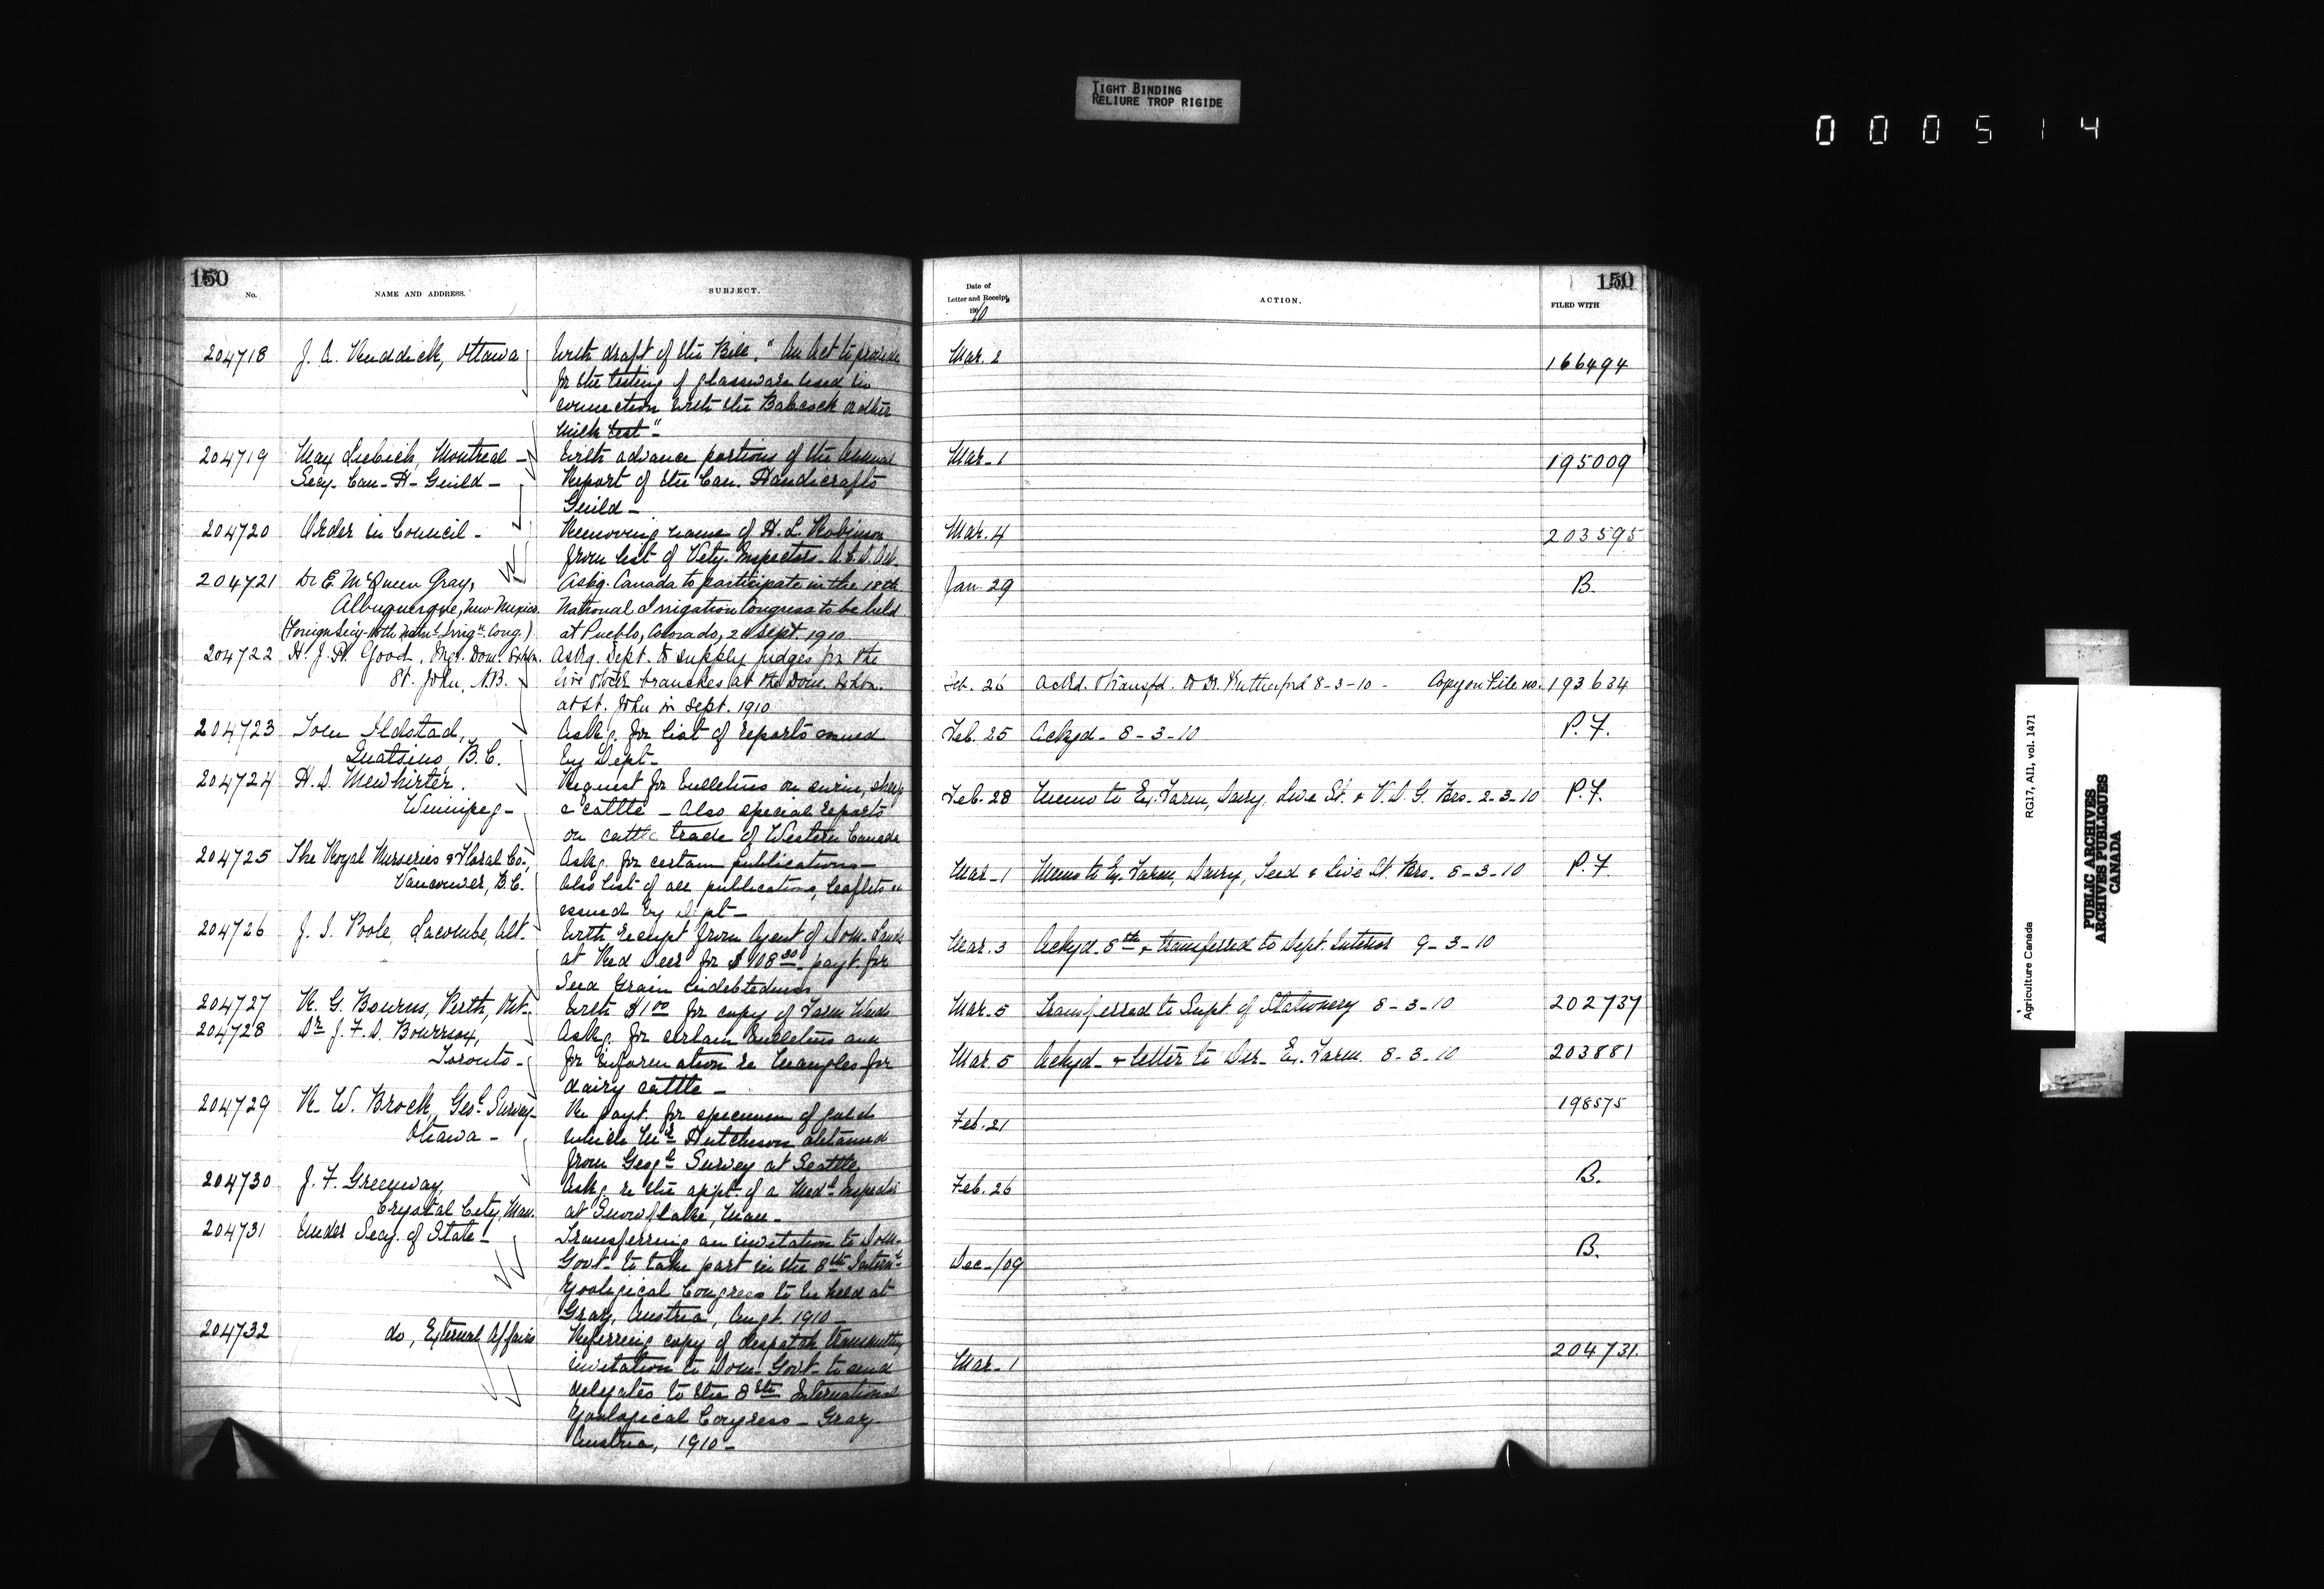 TIGHT BINDING
RELIURE TROP RIGIDE
0 0 0 5 1 4
150
No.
NAME AND ADDRESS.
SUBJECT.
204718 J. A. Ruddick, Ottawa With draft of the Bill, "An Act to provide
for the testing of glassware used in
connection with the Babcock or other
Milk test"
204719 Max Liebich, Montreal - With advance portions of the Annual
Secy. Can- H- Guild - Report of the Can. Handicrafts
Guild -
204720 Order in Council - Removing name of H. L. Robinson
from list of Vety. Inspectors.
204721 Dr E. McQueen Gray, Askg. Canada to participate in the 18th
Albuquerque, New Mexico. National Irrigation Congress to be held
at Pueblo, Colorado, Sept. 1910
204722 H. J. P. Good, Mgr. Dom. Exhbn. Askg. Dept. to supply judges for the
St. John, N.B. live stock branches at the Dom. Exhbn.
at St. John in Sept. 1910
204723 Ildstad, Askg. for list of reports issued
Quatsino, B.C. by Dept-
204724 H. D. Mewhirter. Request for bulletins on swine, sheep
Winnipeg - & cattle - Also special reports
on cattle trade of Western Canada
204725 The Royal Nurseries & Floral Co., Askg. for certain publications -
Vancouver, B.C. Also list of all publications, leaflets
issued by Dept -
204726 J. S. Poole, Lacombe, Alt. With receipt from Agent of Dom. Lands
at Red Deer for $108 payt. for
Seed Grain indebtedness
204727 R. G. Bourns, Perth, Ont. With $1 00 for copy of Farm Weeds
204728 Dr J. F. D. Askg. for certain bulletins and
Toronto - for information re mangles for
dairy cattle -
204729 R. W. Brock, Geol. Survey- Re payt. for specimen of gold
Ottawa - which Mr Hutchison obtained
from Geogl Survey at Seattle
204730 J. F. Greenway, Askg. re the appt. of a Medl Inspector
Crystal City, Man. at Snowflake, Man -
204731 Under Secy. of State - Transferring an invitation to Dom.
Govt- to take part in the 8th Internl
Zoological Congress to be held at
Graz, Austria, Augt. 1910 -
204732 do, External Affairs Referring copy of despatch transmitting
invitation to Dom- Govt- to send
delegates to the 8th International
Zoological Congress - Graz
Austria, 1910 -
150
Date of
Letter and Receipt,
1910
ACTION.
FILED WITH
Mar. 2 166494
Mar- 1 195009
Mar. 4 203595
Jan. 29 B.
Feb. 26 Ackd. & transfd. to Dr. Rutherford 8-3-10 - Copy on File no. 193634
Feb. 25 Ackgd- 8-3-10 P. F.
Feb. 28 Memo to Ex. Farm, Dairy, Live St. & V. D. G. Brs. 2-3-10 P. F.
Mar- 1 Memo to Ex. Farm, Dairy, Seed & Live St. Brs. 8-3-10 P. F.
Mar. 3 Ackgd. 8th & transferred to Dept. Interior 9-3-10
Mar. 5 Transferred to Supt. of Stationery 8-3-10 202737
Mar. 5 Ackgd- & letter to Dir- Ex. Farm. 8-3-10 203881
Feb. 21 198575
Feb. 26 B.
Dec-/09 B.
Mar- 1 204731.
Agriculture Canada
RG17, AII, vol. 1471
PUBLIC ARCHIVES
ARCHIVES PUBLIQUES
CANADA